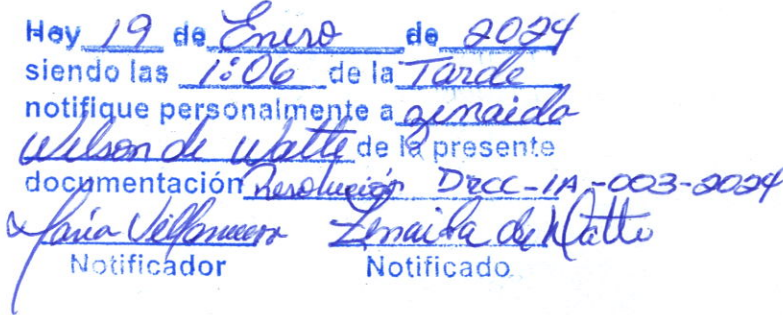 Hoy 19 de Enero de 2024
siendo las 1:06 de la Tarde
notifique personalmente a Zenaida
Wilson de Watts de la presente
documentación Resolución DRCC-IA-003-2024
María Villanueva Zenaida de Watts
Notificador Notificado